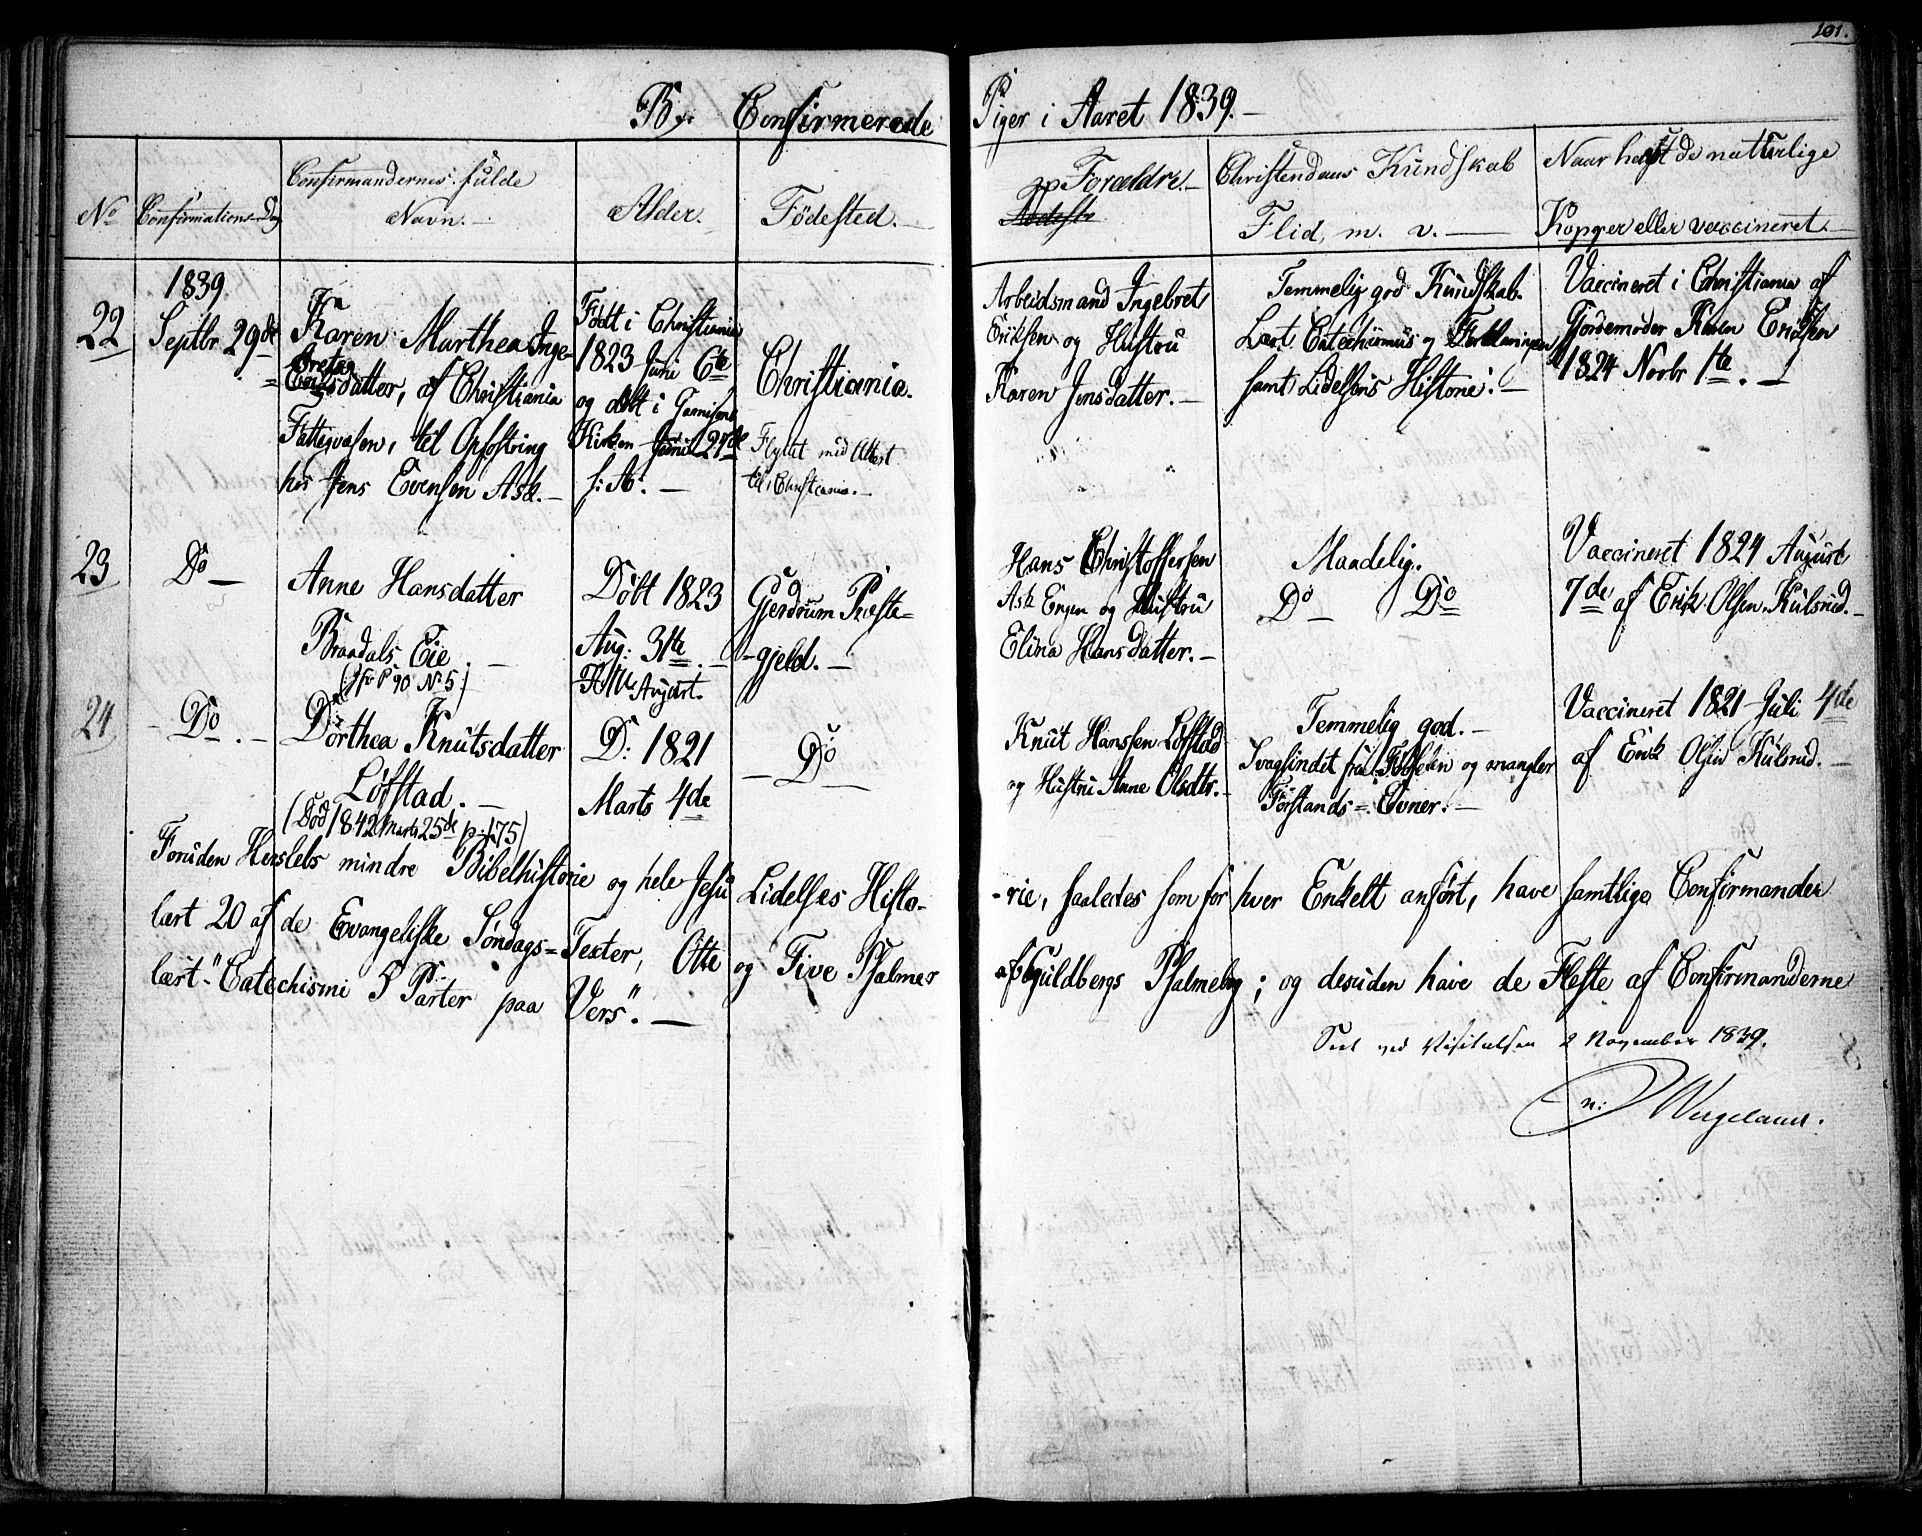 101.
B. Confirmerede Piger i Aaret 1839.-
No
Confirmations-Dag
Confirmandernes fulde
Navn.-
Alder.
Fødested.-
Forældre.-
Christendoms Kundskab
Flid, m. v.-
Naar havt de naturlige
Kopper eller vaccineret.-
22
1839
Septbr 29de
Karen Marthea Inge-
brets
datter, af Christiania
Fattigvæsen, til Opfostring
hos Jens Evensen Ask.-
Født i Christiania
1823 Juni 6te
og døbt i Garnisons
Kirken Juni 27de
s: A.-
Christiania.
Flyttet med Attest
til Christiania.-
Arbeidsmand Ingebret
Eriksen og Hustru
Karen Jensdatter.-
Temmelig god Kundskab.
Læst Catechismus og Forklaringen
samt Lidelsens Historie.-
Vaccineret i Christiania af
Gjordemoder Karen Eriksen
1824 Novbr 1te.-
23
Do-
Anne Hansdatter
Brandals Eie.-
(Jfr P 90 No 5)
Døbt 1823
Aug: 31te.-
August.
Gjerdrum Præste-
-gjeld.-
Hans Christoffersen
Ask Engen og Hustru
Elina Hansdatter.-
Maadelig.
Do- Do
Vaccineret 1824 August
7de af Erik Olsen Kulsrud.-
24
-Do.-
Dorthea Knutsdatter
Løfstad.-
(Død 1842 Marts 25de p: 175)
D: 1821
Marts 4de
-Do-
Knut Hanssen Løfstad
og Hustru Anne Olsdtr.-
Temmelig god.-
Svagsindet fra Fødselen og mangler
Forstands=Evner.-
Vaccineret 1821 Juli 4de
af Erik Olsen Kulsrud.-
Foruden Herslebs mindre Bibelhistorie og hele Jesu Lidelses Histo-
-rie, saaledes som for hver Enkelt anført, have samtlige Confirmander
lært 20 af de Evangeliske Søndags=Texter, Otte og Tive Psalmer
af Guldbergs Psalmebog; og desuden have de Fleste af Confirmanderne
lært "Catechismi 5 Parter paa Vers".-
Seet ved Visitatsen 2 November 1839.
N: Wergeland.